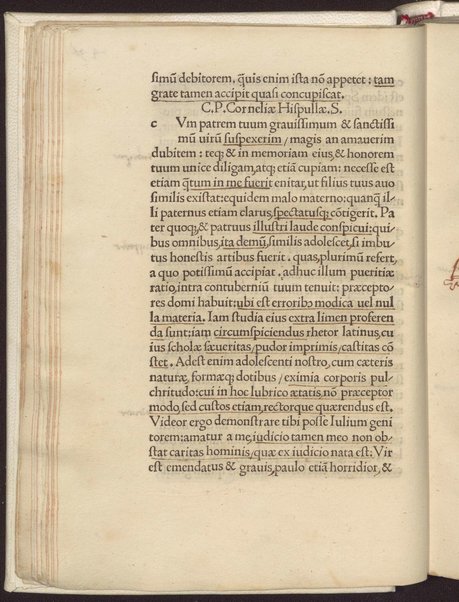 simū debitorem, q̃uis enim ista nō appetet: tam
grate tamen accipit quasi concupiscat.
C.P. Corneliæ Hispullæ.S.
c Vm patrem tuum grauissimum & sanctissi
mū uirū suspexerim/magis an amauerim
dubitem: teq; & in memoriam eius, & honorem
tuum unice diligam, atq; etiā cupiam: necesse est
etiam q̃tum in me fuerit enitar, ut filius tuus auo
similis existat: equidem malo materno: quanq̃ il/
li paternus etiam clarus, spectatusq; cōtigerit. Pa
ter quoq;, & patruus illustri laude conspicui: qui/
bus omnibus, ita demū, similis adolescet, si imbu/
tus honestis artibus fuerit. quas, plurimū refert,
a quo potissimū accipiat. adhuc illum pueritiæ
ratio, intra contuberniū tuum tenuit: præcepto/
res domi habuit: ubi est erroribꝫ modica uel nul
la materia. Iam studia eius extra limen proferen
da sunt: iam circumspiciendus rhetor latinus, cu
ius scholæ sæueritas/pudor imprimis/castitas cō
stet. Adest enim adolescenti nostro, cum cæteris
naturæ, formæq; dotibus/ eximia corporis pul/
chritudo: cui in hoc lubrico ætatis, nō præceptor
modo, sed custos etiam, rectorque quærendus est.
Videor ergo demonstrare tibi posse Iulium geni
torem: amatur a me, iudicio tamen meo non ob/
stat caritas hominis, quæ ex iudicio nata est: Vir
est emendatus & grauis, paulo etiā horridior, &